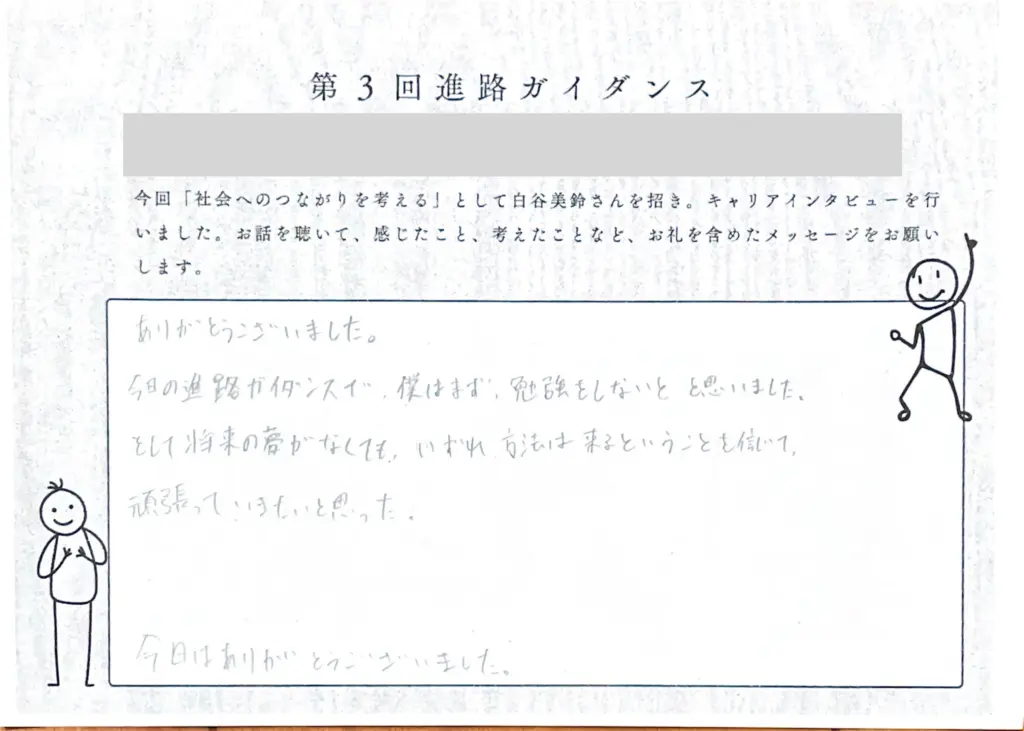 第3回進路ガイダンス
今回「社会へのつながりを考える」として白谷美鈴さんを招き。キャリアインタビューを行
いました。お話を聴いて、感じたこと、考えたことなど、お礼を含めたメッセージをお願い
します。
ありがとうございました。
今日の進路ガイダンスで、僕はまず、勉強をしないと と思いました。
そして将来の夢がなくても、いずれ 方法は来るということを信じて、
頑張っていきたいと思った。
今日はありがとうございました。